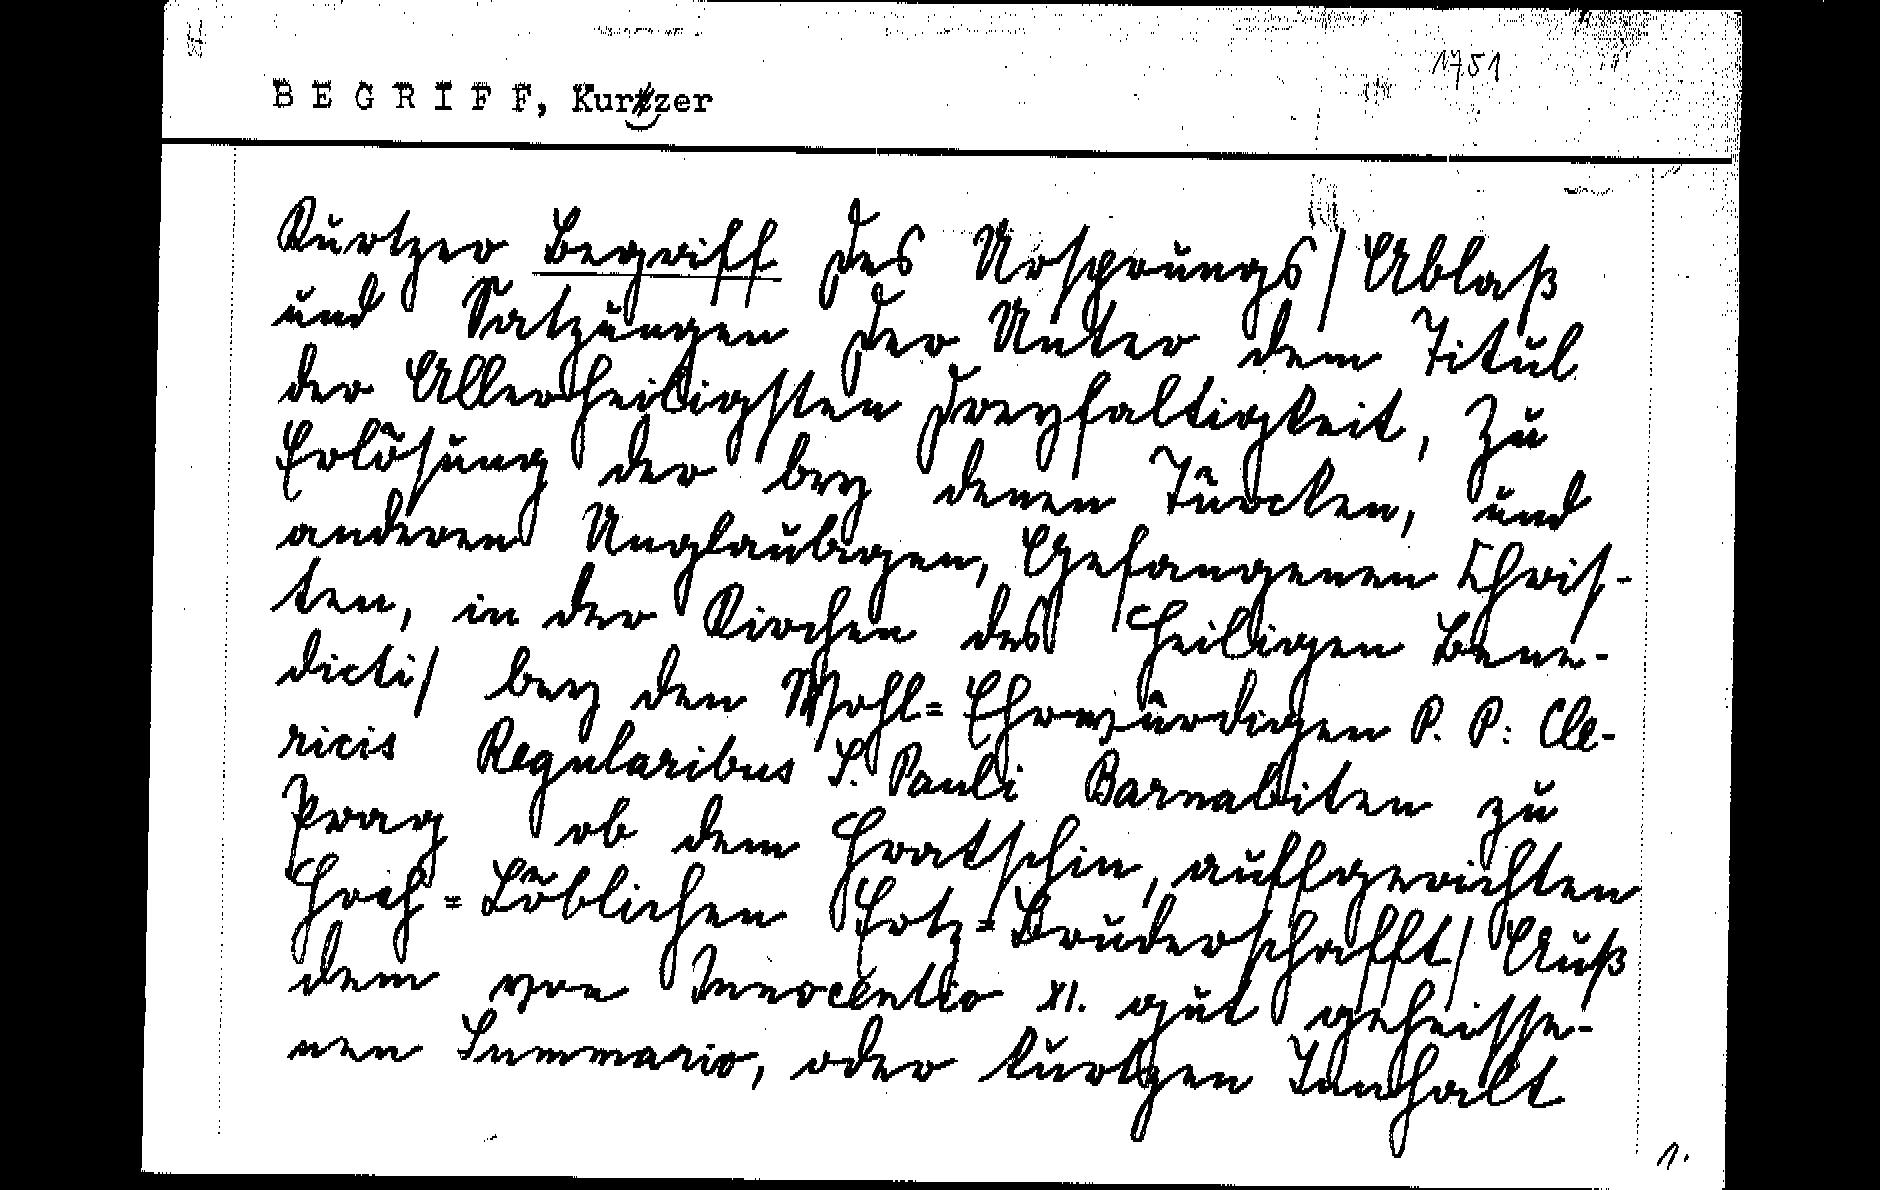 1751
BEGRIFF, Kurzer
Kurtzer Begriff des Ursprungs/ Ablaß
und Satzungen der Unter dem Titul
der Allerheiligsten Dreyfaltigkeit, Zu
Erlösung der bey denen Türcken, und
anderen Unglaubigen, Gefangenen Chris-
ten, in der Kirchen des Heiligen Bene-
dicti/ bey den Wohl=Ehrwürdigen P. P: Cle-
ricis Regularibus S. Pauli Barnabiten zu
Prag ob dem Hratschin, auffgerichten
Hoch=Löblichen Ertz=Bruderschafft/ Auß
dem von Innocentio XI. gut geheisse-
nen Summario, oder kurtzen Innhalt
1.